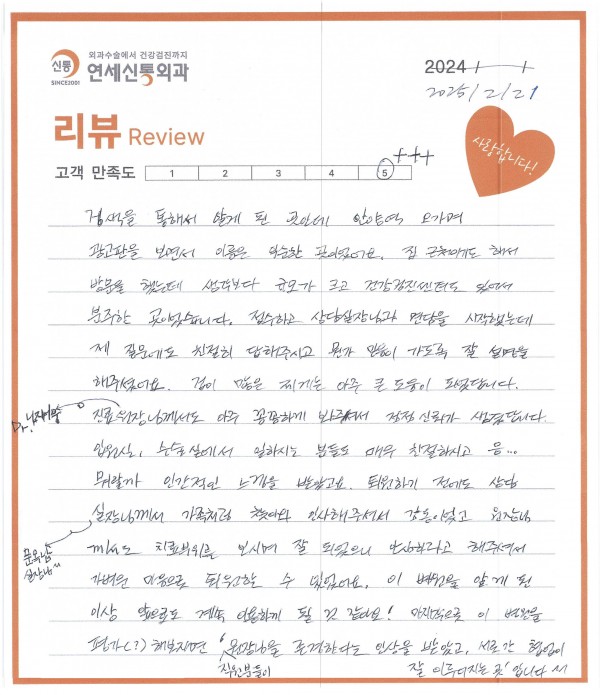 외과수술에서 건강검진까지
신통
SINCE2001
연세신통외과
2024 / /
2025/2/21
리뷰 Review
사랑합니다!
고객 만족도 1 2 3 4 5 +++
검색을 통해서 알게 된 곳인데 안양역 오가며
광고판을 보면서 이름은 익숙한 곳이었어요. 집 근처이기도 해서
방문을 했는데 생각보다 규모가 크고 건강검진센터도 있어서
분주한 곳이었습니다. 접수하고 상담실장님과 면담을 시작했는데
제 질문에도 친절히 답해주시고 뭔가 믿음이 가도록 잘 설명을
해주셨어요. 겁이 많은 저에게는 아주 큰 도움이 되었답니다.
진료 원장님께서도 아주 꼼꼼하게 봐주셔서 점점 신뢰가 생겼답니다.
Dr.
입원실, 수술실에서 일하시는 분들도 매우 친절하시고 음...
뭐랄까 인간적인 느낌을 받았고요. 퇴원하기 전에도 상담
실장님께서 가족처럼 찾아와 인사해주셔서 감동이었고 원장님
실장님
께서도 치료부위를 보시며 잘 되었으니 안심하라고 해주셔서
가벼운 마음으로 퇴원할 수 있었어요. 이 병원을 알게 된
이상 앞으로도 계속 이용하게 될 것 같아요! 마지막으로 이 병원을
평가(?)해보자면 '원장님을 존경한다는 인상을 받았고, 서로간 협업이
직원분들이
잘 이루어지는 곳' 입니다